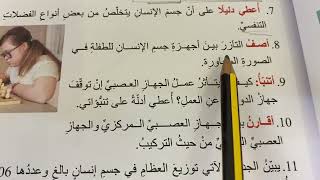 7. أُعطي دليلًا على أنّ جسمَ الإنسانِ يتخلّصُ من بعضِ أنواعِ الفضلاتِ
التنفسيّ.
8. أصفُ التآزرَ بينَ أجهزةِ جسمِ الإنسانِ للطفلةِ في
الصورةِ
9. أتنبّأُ: عملُ الجهازِ العصبيِّ إنْ توقّفَ
جهازُ عنِ العملِ؟ أعطي أدلّةً على تنبُّؤاتي.
10. أُقارنُ الجهازِ العصبيِّ المركزيِّ والجهازِ
العصبيِّ من حيثُ التركيبُ.
11. يبيّنُ الآتي توزيعَ العظامِ في جسمِ إنسانٍ بالغٍ وعددُها 06